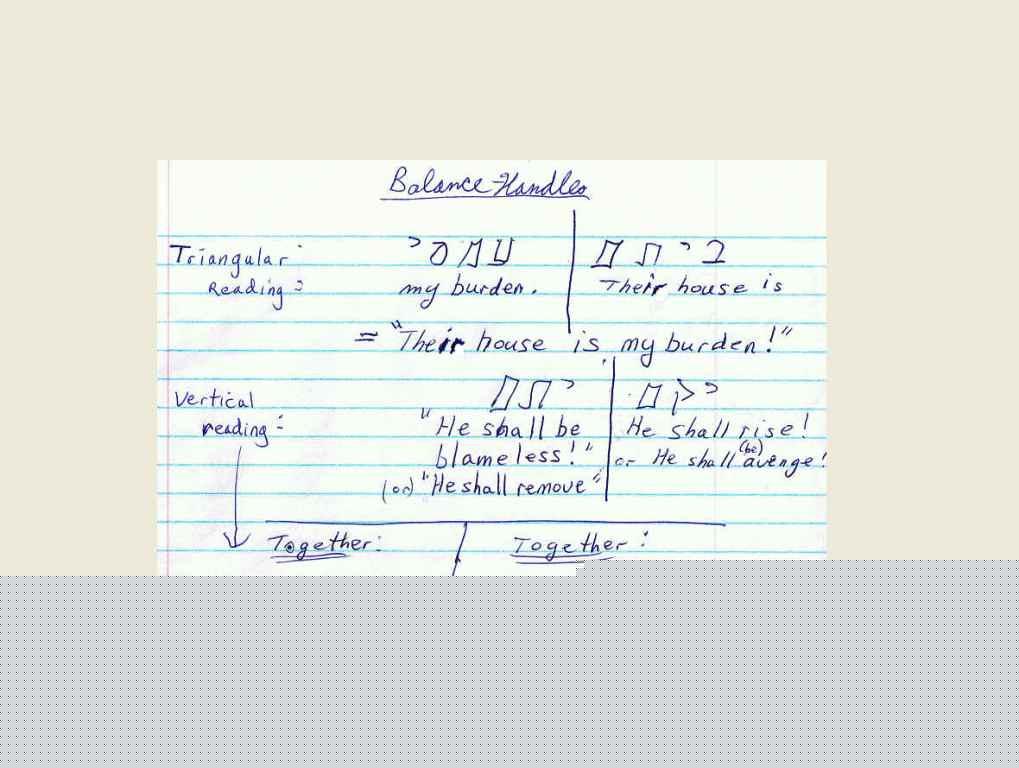 Balance Handles
Triangular ביתם
Reading: my burden. Their house is
= "Their house is my burden!"
Vertical יתם יקם
reading: "He shall be He shall rise!
blameless!" or He shall (be) avenge!
(or) "He shall remove"
Together: Together: